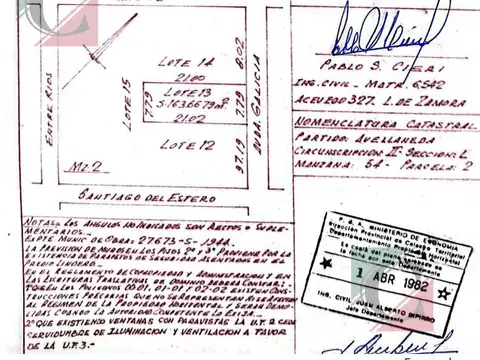 LOTE 14
21.00
8.02
LOTE 13
S.163.6679m²
21.02
7.79
7.79
LOTE 15
LOTE 12
97.19
ENTRE RIOS
AVDA. GALICIA
Mz. 2
SANTIAGO DEL ESTERO
PABLO S. CIERI
ING. CIVIL - MATR. 6.542
ACEVEDO 327. L. DE ZAMORA
NOMENCLATURA CATASTRAL
PARTIDO AVELLANEDA
CIRCUNSCRIPCION II - SECCION: L
MANZANA: 54 - PARCELA: 2
NOTAS: LOS ANGULOS NO INDICADOS SON RECTOS O SUPLE-
MENTARIOS.
EXPTE MUNIC DE OBRA: 27673-S-1944.
LA PREVISION DE MUROS EN LOS PISOS 2º Y 3º PROVIENE POR LA
EXISTENCIA DE PARAPETOS DE SEGURIDAD ASENTADOS EN EL
PREDIO LINDERO.
EN EL REGLAMENTO DE COPROPIEDAD Y ADMINISTRACION Y EN
LAS ESCRITURAS TRASLATIVAS DE DOMINIO DEBERA CONSTAR:
1º QUE EN LOS POLIGONOS 01-01 Y 02-02 EXISTEN CONS-
TRUCCIONES PRECARIAS QUE NO SE REPRESENTAN NI SE AFECTAN
AL REGIMEN DE LA PROPIEDAD HORIZONTAL Y SERAN DEMO-
LIDAS CUANDO LA AUTORIDAD COMPETENTE LO EXIJA.
2º QUE EXISTIENDO VENTANAS CON PARAVISTAS LA U.F. 2 CEDE
SERVIDUMBRE DE ILUMINACION Y VENTILACION A FAVOR
DE LA U.F. 3.-
P.B.A. MINISTERIO DE ECONOMIA
Dirección Provincial de Catastro Territorial
Departamento Propiedad Horizontal
La copia del plano
la fecha por este Departamento
1 ABR 1982
ING. CIVIL JUAN ALBERTO
Jefe Departamento